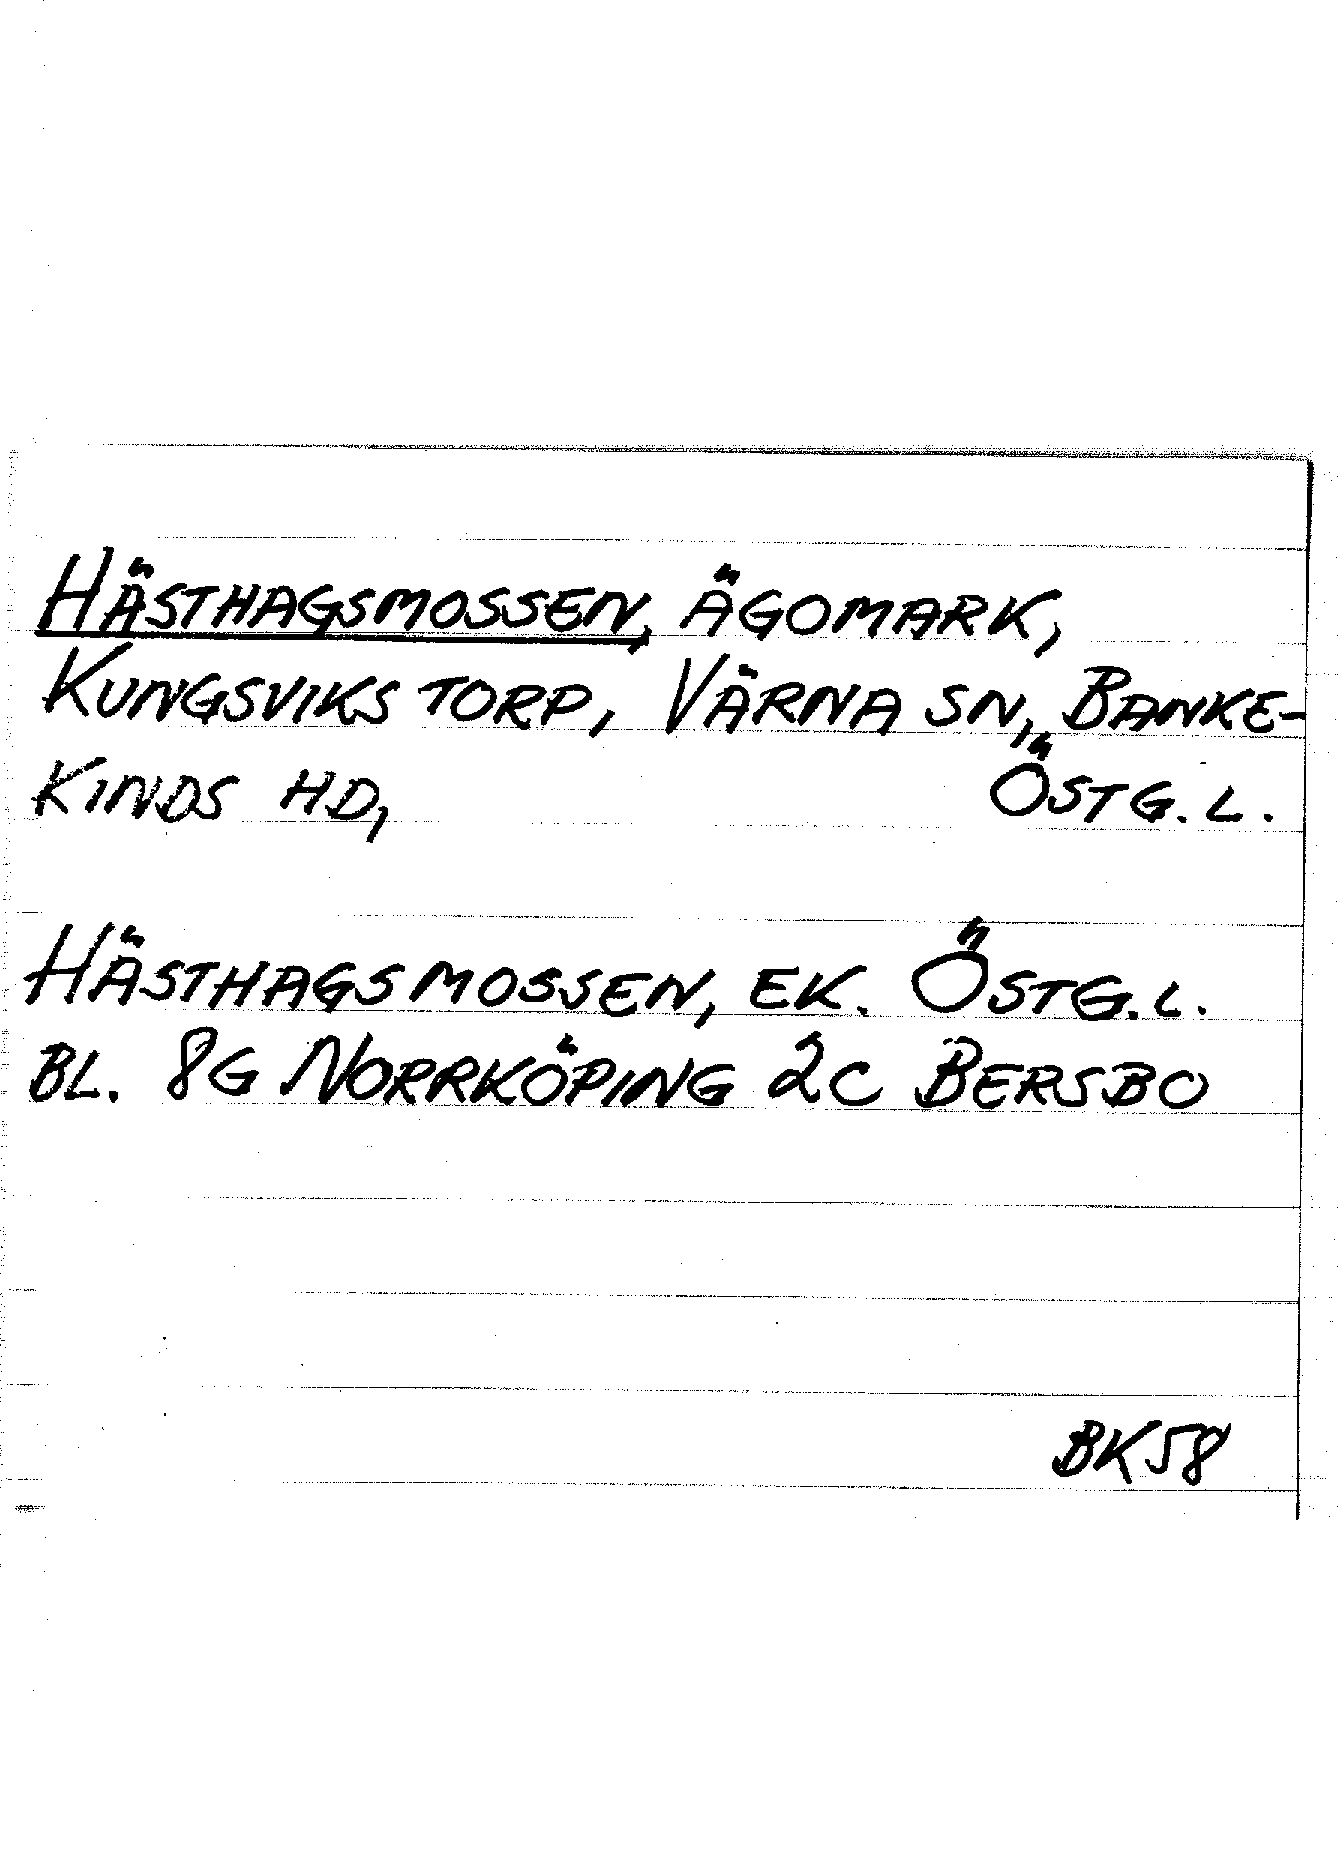 HÄSTHAGSMOSSEN, ÄGOMARK,
KUNGSVIKSTORP, VÄRNA SN, BANKE-
KINDS HD, ÖSTG. L.
HÄSTHAGSMOSSEN, EK. ÖSTG. L.
BL. 8G NORRKÖPING 2C BERSBO
BK58